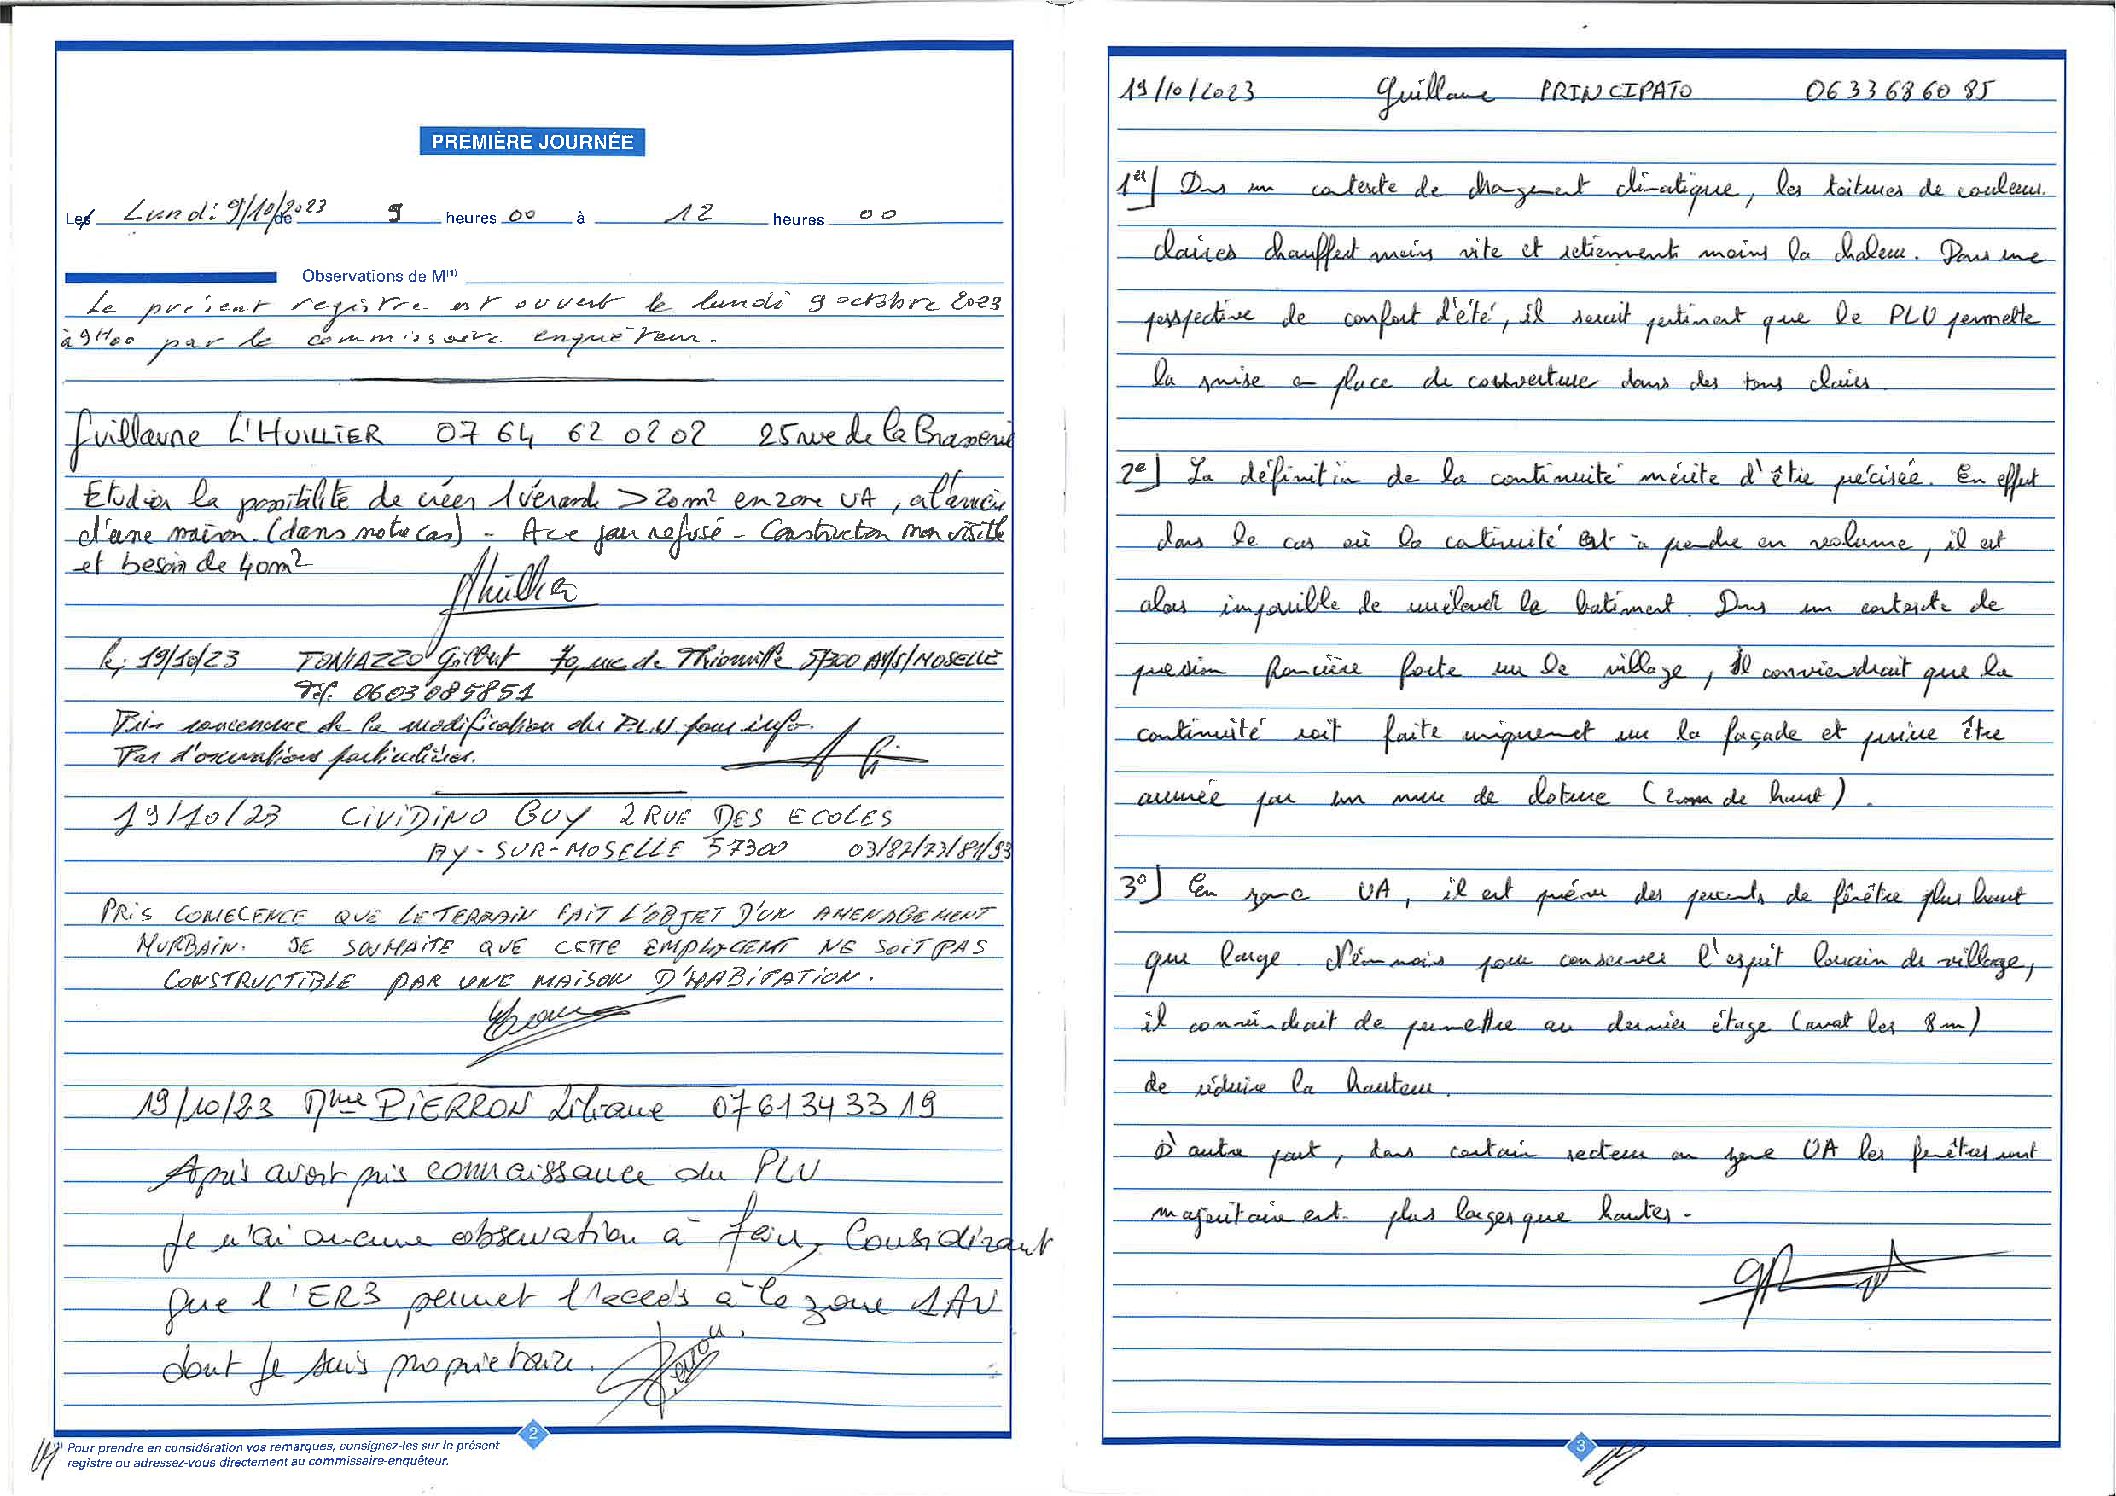 PREMIÈRE JOURNÉE
Les Lundi 9/10/2023 de 9 heures 00 à 12 heures 00
Observations de M(1)
Le présent registre est ouvert le lundi 9 octobre 2023
à 9H00 par le commissaire enquêteur.
Guillaume L'HUILLIER 07 64 62 02 02 25 rue de la Brasserie
Etudier la possibilité de créer 1 véranda > 20m² en zone UA, à l'arrière
d'une maison. (dans notre cas) - A ce jour refusé - Construction non visible
et besoin de 40m²
le, 19/10/23 TONIAZZO Gilbert 70, rue de Thionville 57300 AY/S/MOSELLE
Tél. 0603085851
Pris connaissance de la modification du P.L.U. pour info.
Pas d'observations particulières.
19/10/23 CIVIDINO GUY 2 RUE DES ECOLES
AY-SUR-MOSELLE 57300 03/82/73/81/93
PRIS CONECENCE QUE LE TERRAIN FAIT L'OBJET D'UN AMENAGEMENT
HURBAIN. JE SOUHAITE QUE CETTE EMPLACEMT NE SOIT PAS
CONSTRUCTIBLE PAR UNE MAISON D'HABITATION.
19/10/23 Mme PIERRON Liliane 07 61 34 33 19
Après avoir pris connaissance du PLU
Je n'ai aucune observation à faire, Considérant
que l'ER3 permet l'accès à la zone 1AU
dont je suis propriétaire.
2
Pour prendre en considération vos remarques, consignez-les sur le présent
registre ou adressez-vous directement au commissaire-enquêteur.
19/10/2023 Guillaume PRINCIPATO 06 33 68 60 85
1er] Dans un contexte de changement climatique, les toitures de couleurs
claires chauffent moins vite et retiennent moins la chaleur. Dans une
perspective de confort d'été, il serait pertinent que le PLU permette
la mise en place de couverture dans des tons clairs.
2e] La définition de la continuité mérite d'être précisée. En effet
dans le cas où la continuité est à prendre en volume, il est
alors impossible de surélever le bâtiment. Dans un contexte de
pression foncière forte sur le village, il conviendrait que la
continuité soit faite uniquement sur la façade et puisse être
assurée par un mur de cloture (2m de haut).
3°] En zone UA, il est prévu des percements de fenêtre plus haut
que large. Néanmois pour conserver l'esprit lorrain du village,
il conviendrait de permettre au dernier étage (avant les 8m)
de réduire la hauteur.
D'autre part, dans certain secteur en zone UA les fenêtres sont
majoritairement plus larges que hautes.
3